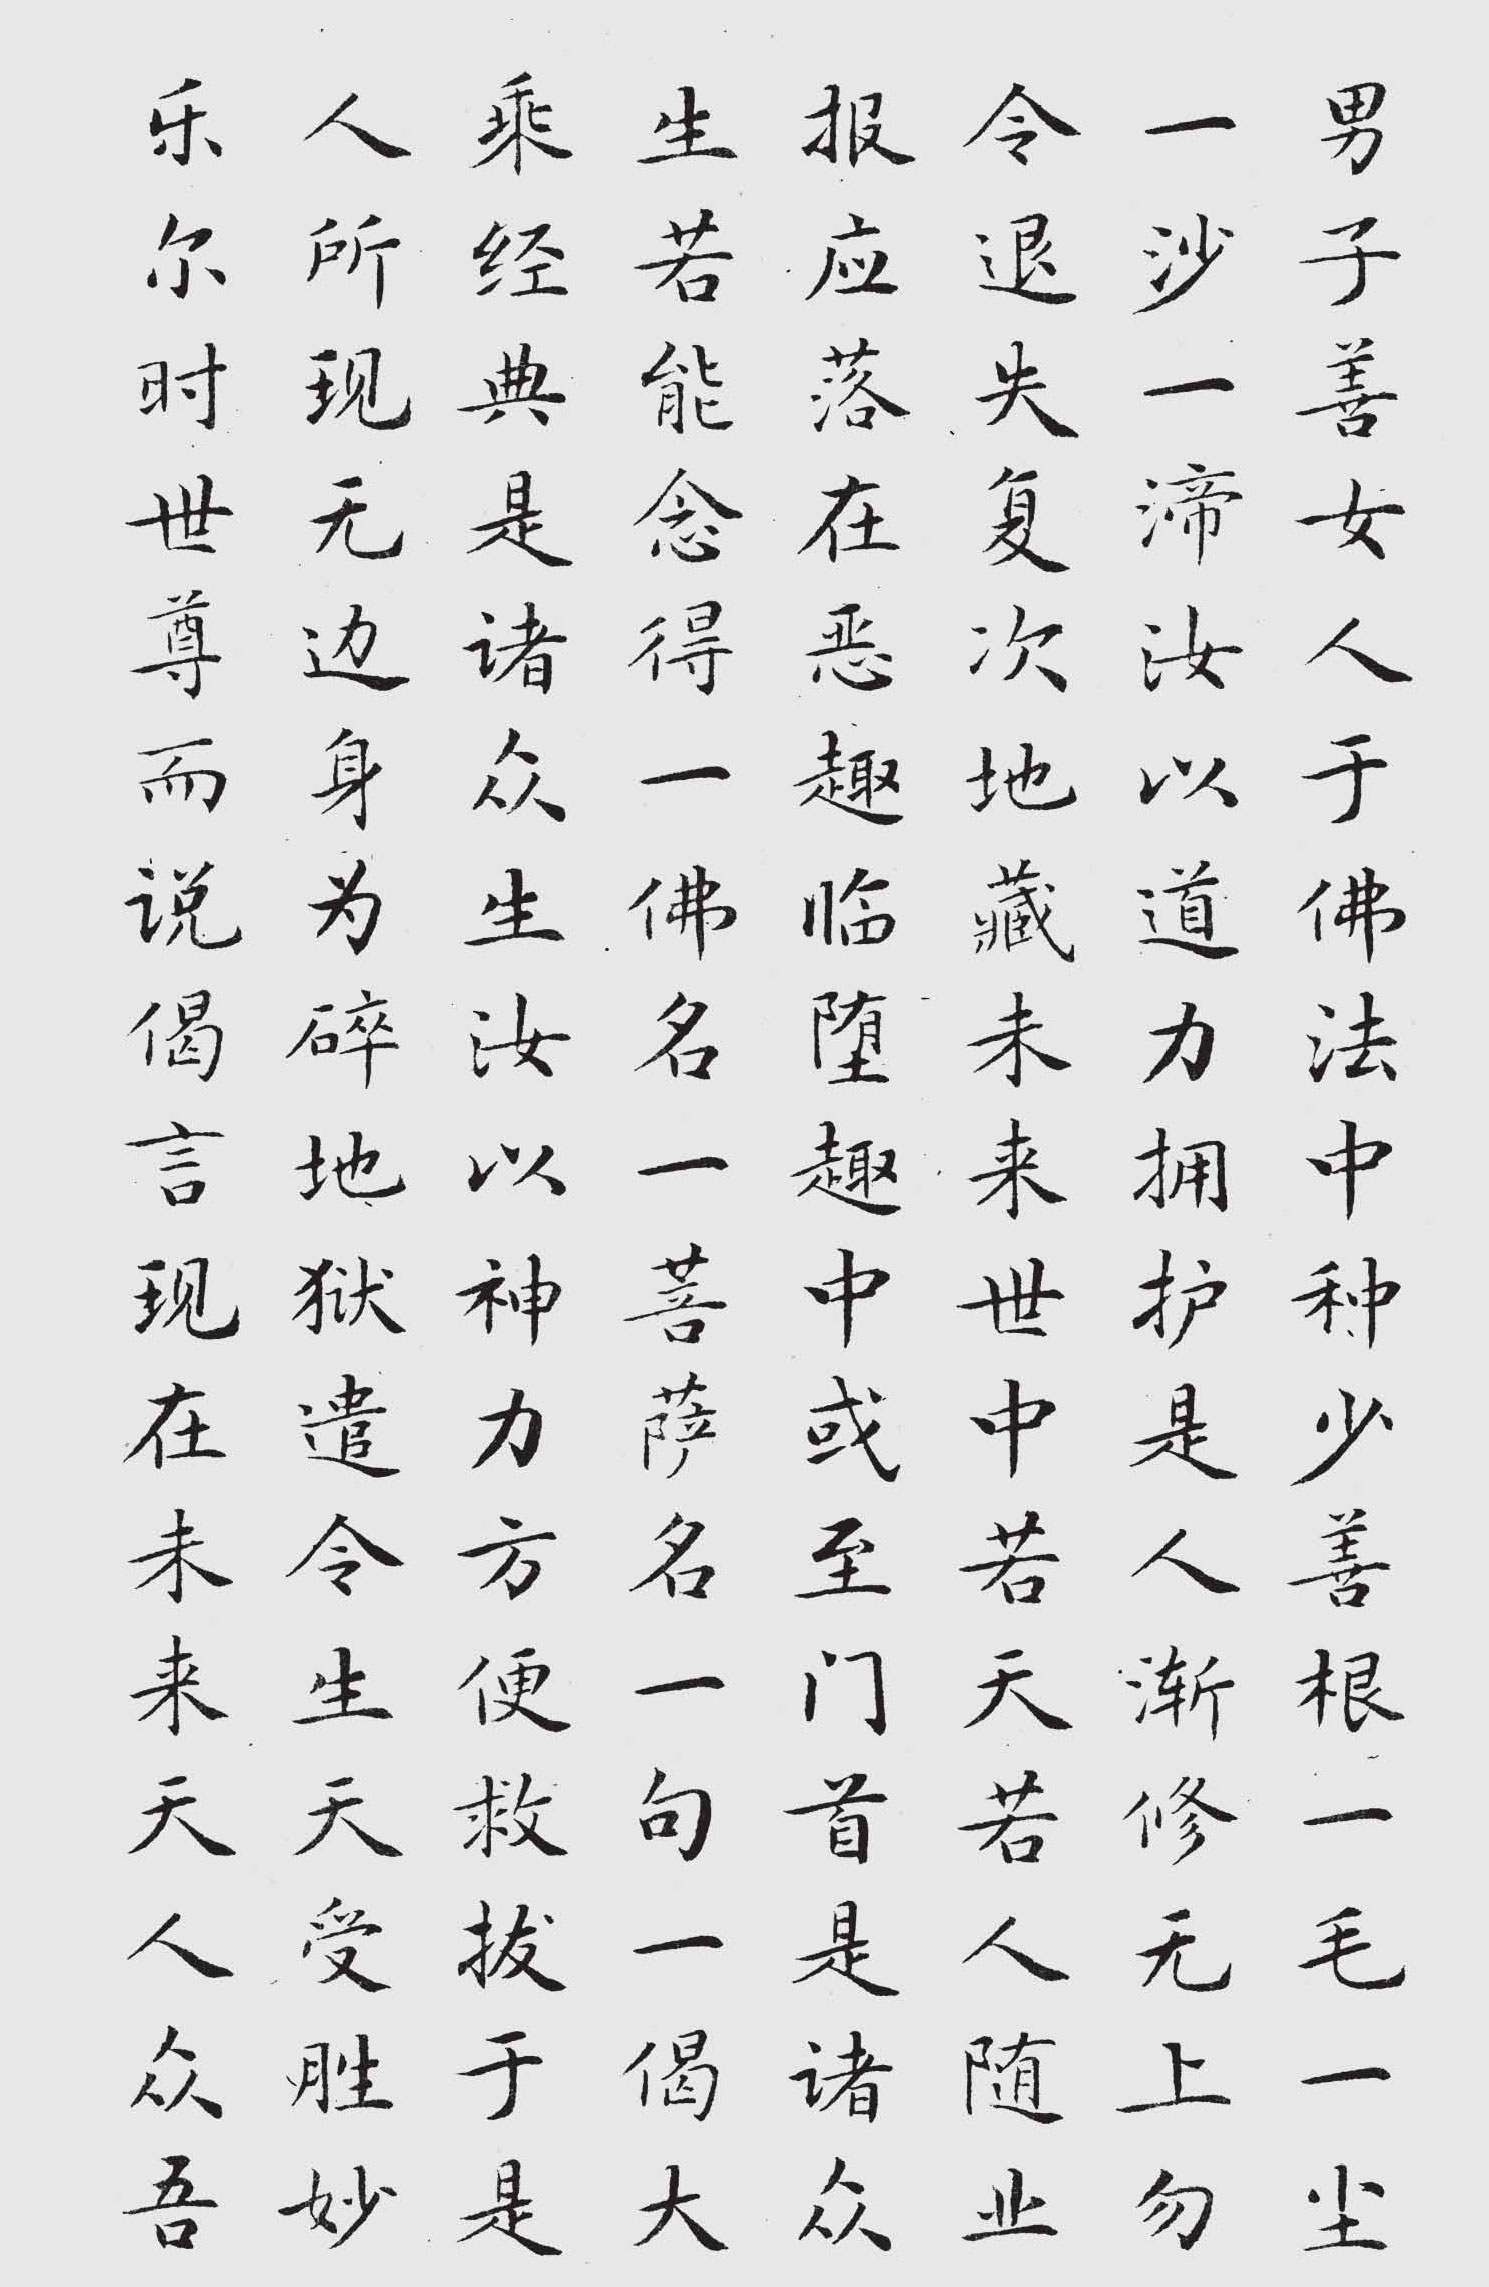 男子善女人于佛法中种少善根一毛一尘
一沙一渧汝以道力拥护是人渐修无上勿
令退失复次地藏未来世中若天若人随业
报应落在恶趣临堕趣中或至门首是诸众
生若能念得一佛名一菩萨名一句一偈大
乘经典是诸众生汝以神力方便救拔于是
人所现无边身为碎地狱遣令生天受胜妙
乐尔时世尊而说偈言现在未来天人众吾